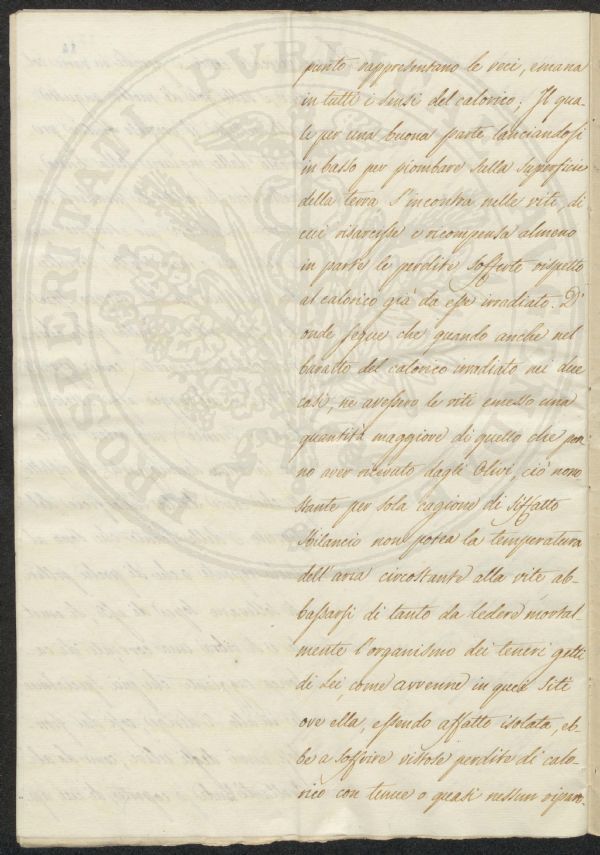 punto rappresentano le veci, emana
in tutti i sensi del calorico; Il qua-
le per una buona parte lanciandosi
in basso per piombare sulla superficie
della terra s'incontra nelle viti, di
cui risarcisse e ricompensa almeno
in parte le perdite sofferte rispetto
al calorico già da esse irradiato. D'
onde segue che quando anche nel
baratto del calorico irradiato nei due
casi, ne avessero le viti emesso una
quantità maggiore di quello che pon-
no aver ricevuto dagli Olivi, ciò nono
stante per sola cagione di siffatto
sbilancio non potea la temperatura
dell'aria circostante alla vite ab-
bassarsi di tanto da ledere mortal-
mente l'organismo dei teneri getti
di Lei, come avvenne in quei siti
ove ella, essendo affatto isolata, eb-
be a soffrire vistose perdite di calo-
rico con tenue o quasi nessun ripar-
PROSPERITATI PVBLICAE